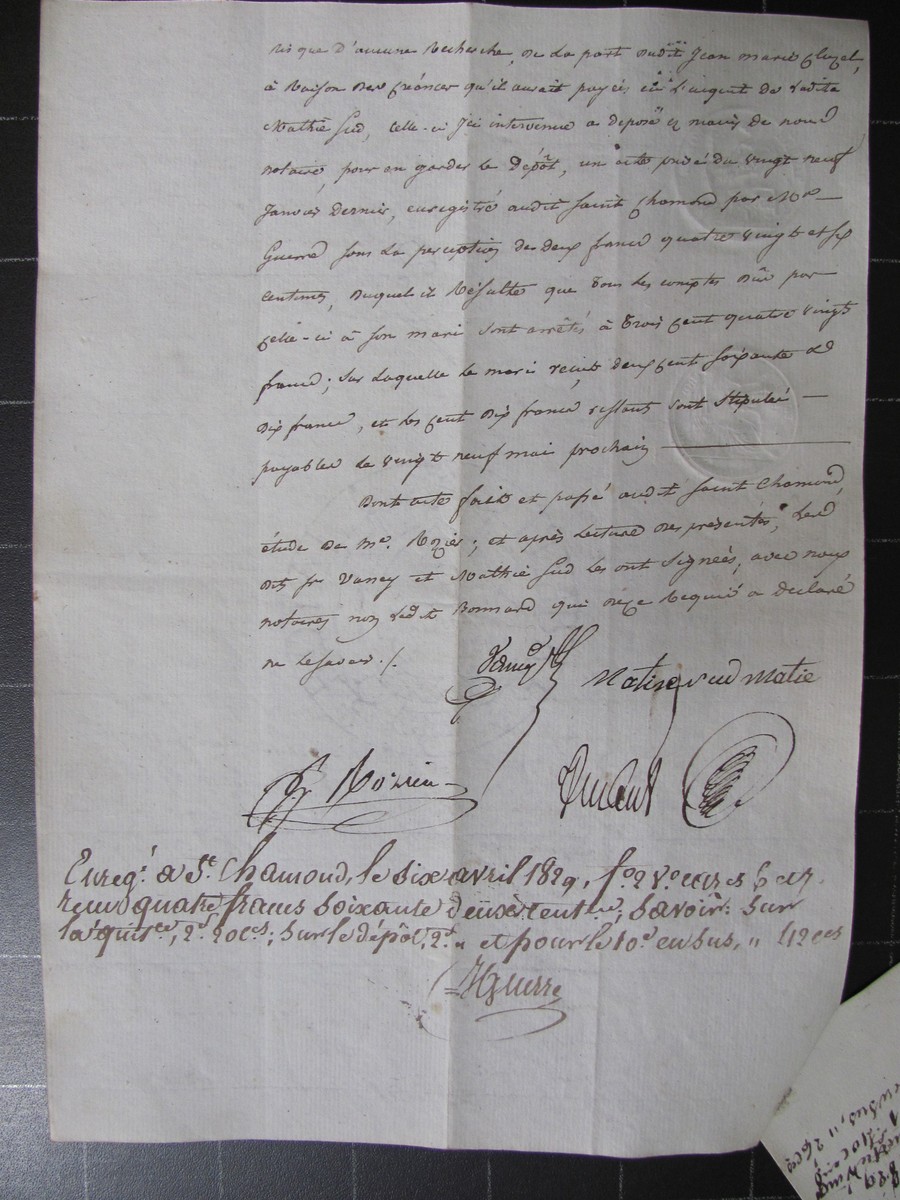 risque d'aucune Recherche, de la part dudit Jean Marie Cluzel,
à Raison des Créances qu'il aurait payées de l'argent de ladite
Mathie Sud, celle-ci ici intervenue a déposé ez mains de nous
notaire, pour en garder le dépôt, un acte privé du vingt neuf
Janvier dernier, enregistré audit Saint Chamond par Mr
Guerre sous la perception de deux francs quatre vingt et six
centimes, duquel il Résulte que tous les comptes dûs par
celle-ci à son mari sont arrêtés à trois cent quatre vingt
francs; sur laquelle le mari reçut deux cent soixante et
dix francs, et les cent dix francs restants sont stipulés
payables le vingt neuf mai prochain
Dont acte fait et passé audit Saint Chamond,
étude de me. Rozier; et après lecture des présentes, les
dits sr Vancy et Mathie Sud les ont signées, avec nous
notaires non ledit Bonnard qui de ce Requis a déclaré
ne le savoir ./.
sud Matie
Rozier
Enregé. a St. Chamond, le six avril 1829, fo. 2 Vo. cases 6 et 7.
reçu quatre francs soixante deux centes, savoir: sur
la quisce, 2f. 20ces; sur le dépôt, 2f. " et pour le 10e. en sus, " 42ces
Guerre
en sus, " 26ces